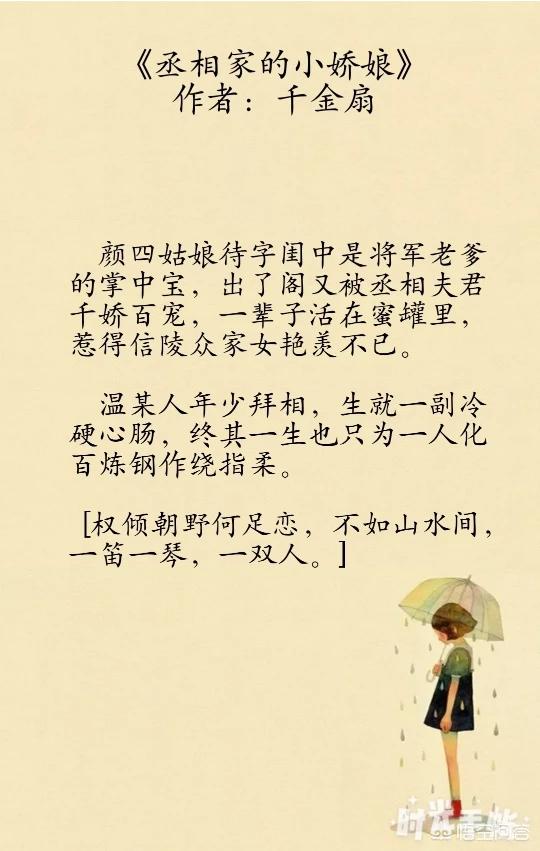 《丞相家的小娇娘》
作者：千金扇
颜四姑娘待字闺中是将军老爹
的掌中宝，出了阁又被丞相夫君
千娇百宠，一辈子活在蜜罐里，
惹得信陵众家女艳羡不已。
温某人年少拜相，生就一副冷
硬心肠，终其一生也只为一人化
百炼钢作绕指柔。
[权倾朝野何足恋，不如山水间，
一笛一琴，一双人。]
时光手帐
悟空问答